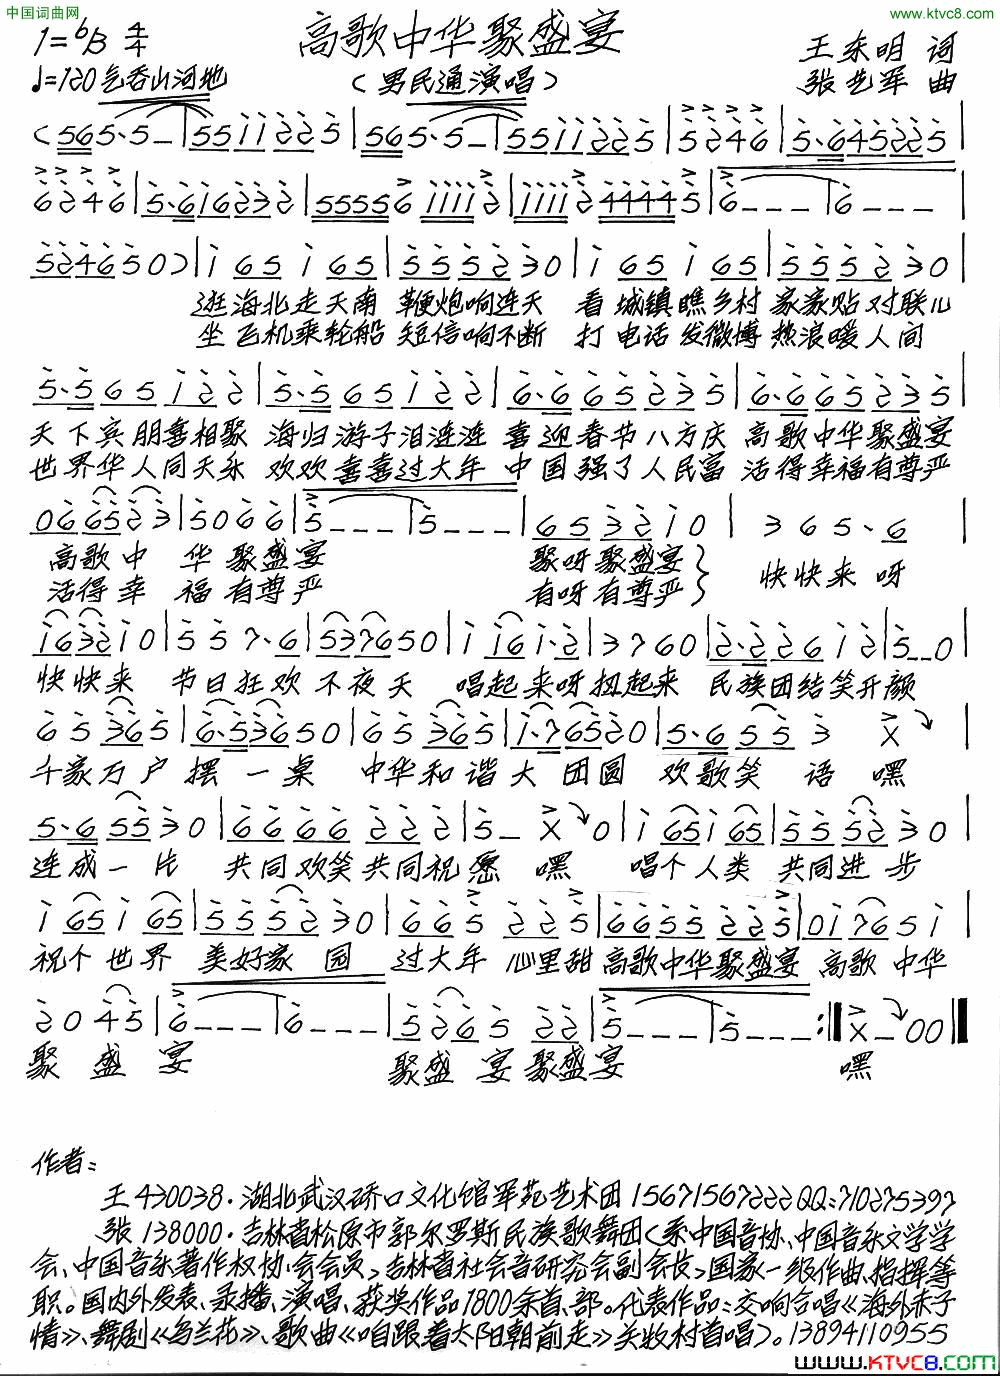 中国词曲网
www.ktvc8.com
高歌中华聚盛宴
1=bB 4/4
♩=120 气吞山河地
(男民通演唱)
王东明 词
张艺军 曲
(565·5·5–|5511225|565·5·5–|5511225|5246|5·645225|
6246|5·616232|5555611112|1111244445|6–––|6–––|
524650)|165165|5555230|165165|5555230|
逛海北走天南 鞭炮响连天 看城镇瞧乡村 家家贴对联儿
坐飞机乘轮船 短信响不断 打电话发微博 热浪暖人间
5·565122|5·565122|6·665235|6·665235|
天下宾朋喜相聚 海归游子泪涟涟 喜迎春节八方庆 高歌中华聚盛宴
世界华人同天乐 欢欢喜喜过大年 中国强了人民富 活得幸福有尊严
066523|5066|5–––|5–––|653210|365·6|
高歌中 华聚盛宴 聚呀聚盛宴 快快来呀
活得幸 福有尊严 有呀有尊严
163210|557·6|537650|1161·2|3760|2·22612|5–0|
快快来 节日狂欢 不夜天 唱起来呀扭起来 民族团结笑开颜
65365|6·53650|65365|1·76520|5·6553X|
千家万户摆一桌 中华和谐大团圆 欢歌笑语嘿
5·65530|6666222|5–X0|165165|5555230|
连成一片 共同欢笑共同祝愿 嘿 唱个人类 共同进步
165165|5555230|665225|6655225|017651|
祝个世界 美好家园 过大年 心里甜 高歌中华聚盛宴 高歌中华
2045|6–––|6–––|526522|5–––|5–––:‖X–00‖
聚盛宴 聚盛宴聚盛宴 嘿
作者:
王430038·湖北武汉硚口文化馆军苑艺术团15671567222QQ:710275397
张138000·吉林省松原市郭尔罗斯民族歌舞团(系中国音协、中国音乐文学学
会、中国音乐著作权协会会员,吉林省社会音研究会副会长,国家一级作曲、指挥等
职。国内外发表、录播、演唱、获奖作品1800余首、部。代表作品:交响合唱《海外赤子
情》、舞剧《乌兰花》、歌曲《咱跟着太阳朝前走》关牧村首唱)。13894110955
www.KTVC8.com